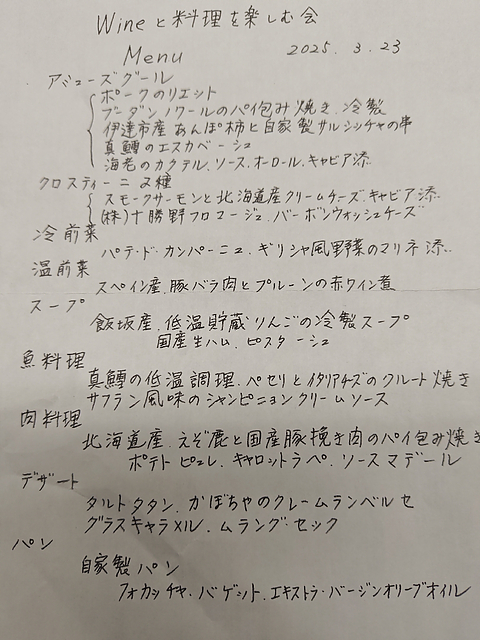 Wineと料理を楽しむ会
Menu 2025. 3. 23
アミューズグール
ポークのリエット
ブーダンノワールのパイ包み焼き.冷製
伊達市産 あんぽ柿と自家製サルシッチャの串
真鱈のエスカベーシュ
海老のカクテル.ソース.オーロール.キャビア添
クロスティーニ2種
スモークサーモンと北海道産クリームチーズ.キャビア添.
(株)十勝野フロマージュ.バーボンウォッシュチーズ
冷前菜
パテ・ド・カンパーニュ.ギリシャ風野菜のマリネ添..
温前菜
スペイン産.豚バラ肉とプルーンの赤ワイン煮
スープ
飯坂産.低温貯蔵りんごの冷製スープ
国産生ハム.ピスターシュ
魚料理
真鱈の低温調理.ペセリとイタリアチーズのクルート焼き
サフラン風味のシャンピニョンクリームソース
肉料理
北海道産.えぞ鹿と国産豚挽き肉のパイ包み焼き
ポテトピュレ.キャロットラペ.ソースマデール
デザート
タルトタタン.かぼちゃのクレームランベルセ
グラスキャラメル.ムラング・セック
パン
自家製パン
フォカッチャ.バゲット.エキストラ・バージンオリーブオイル